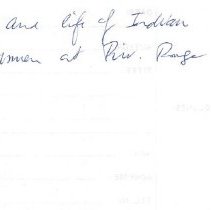 and life of Indian
women at Priv. Range